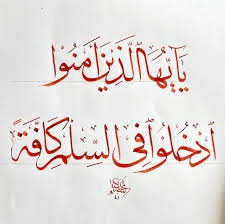 يَا أَيُّهَا الَّذِينَ آمَنُوا
ادْخُلُوا فِي السِّلْمِ كَافَّةً